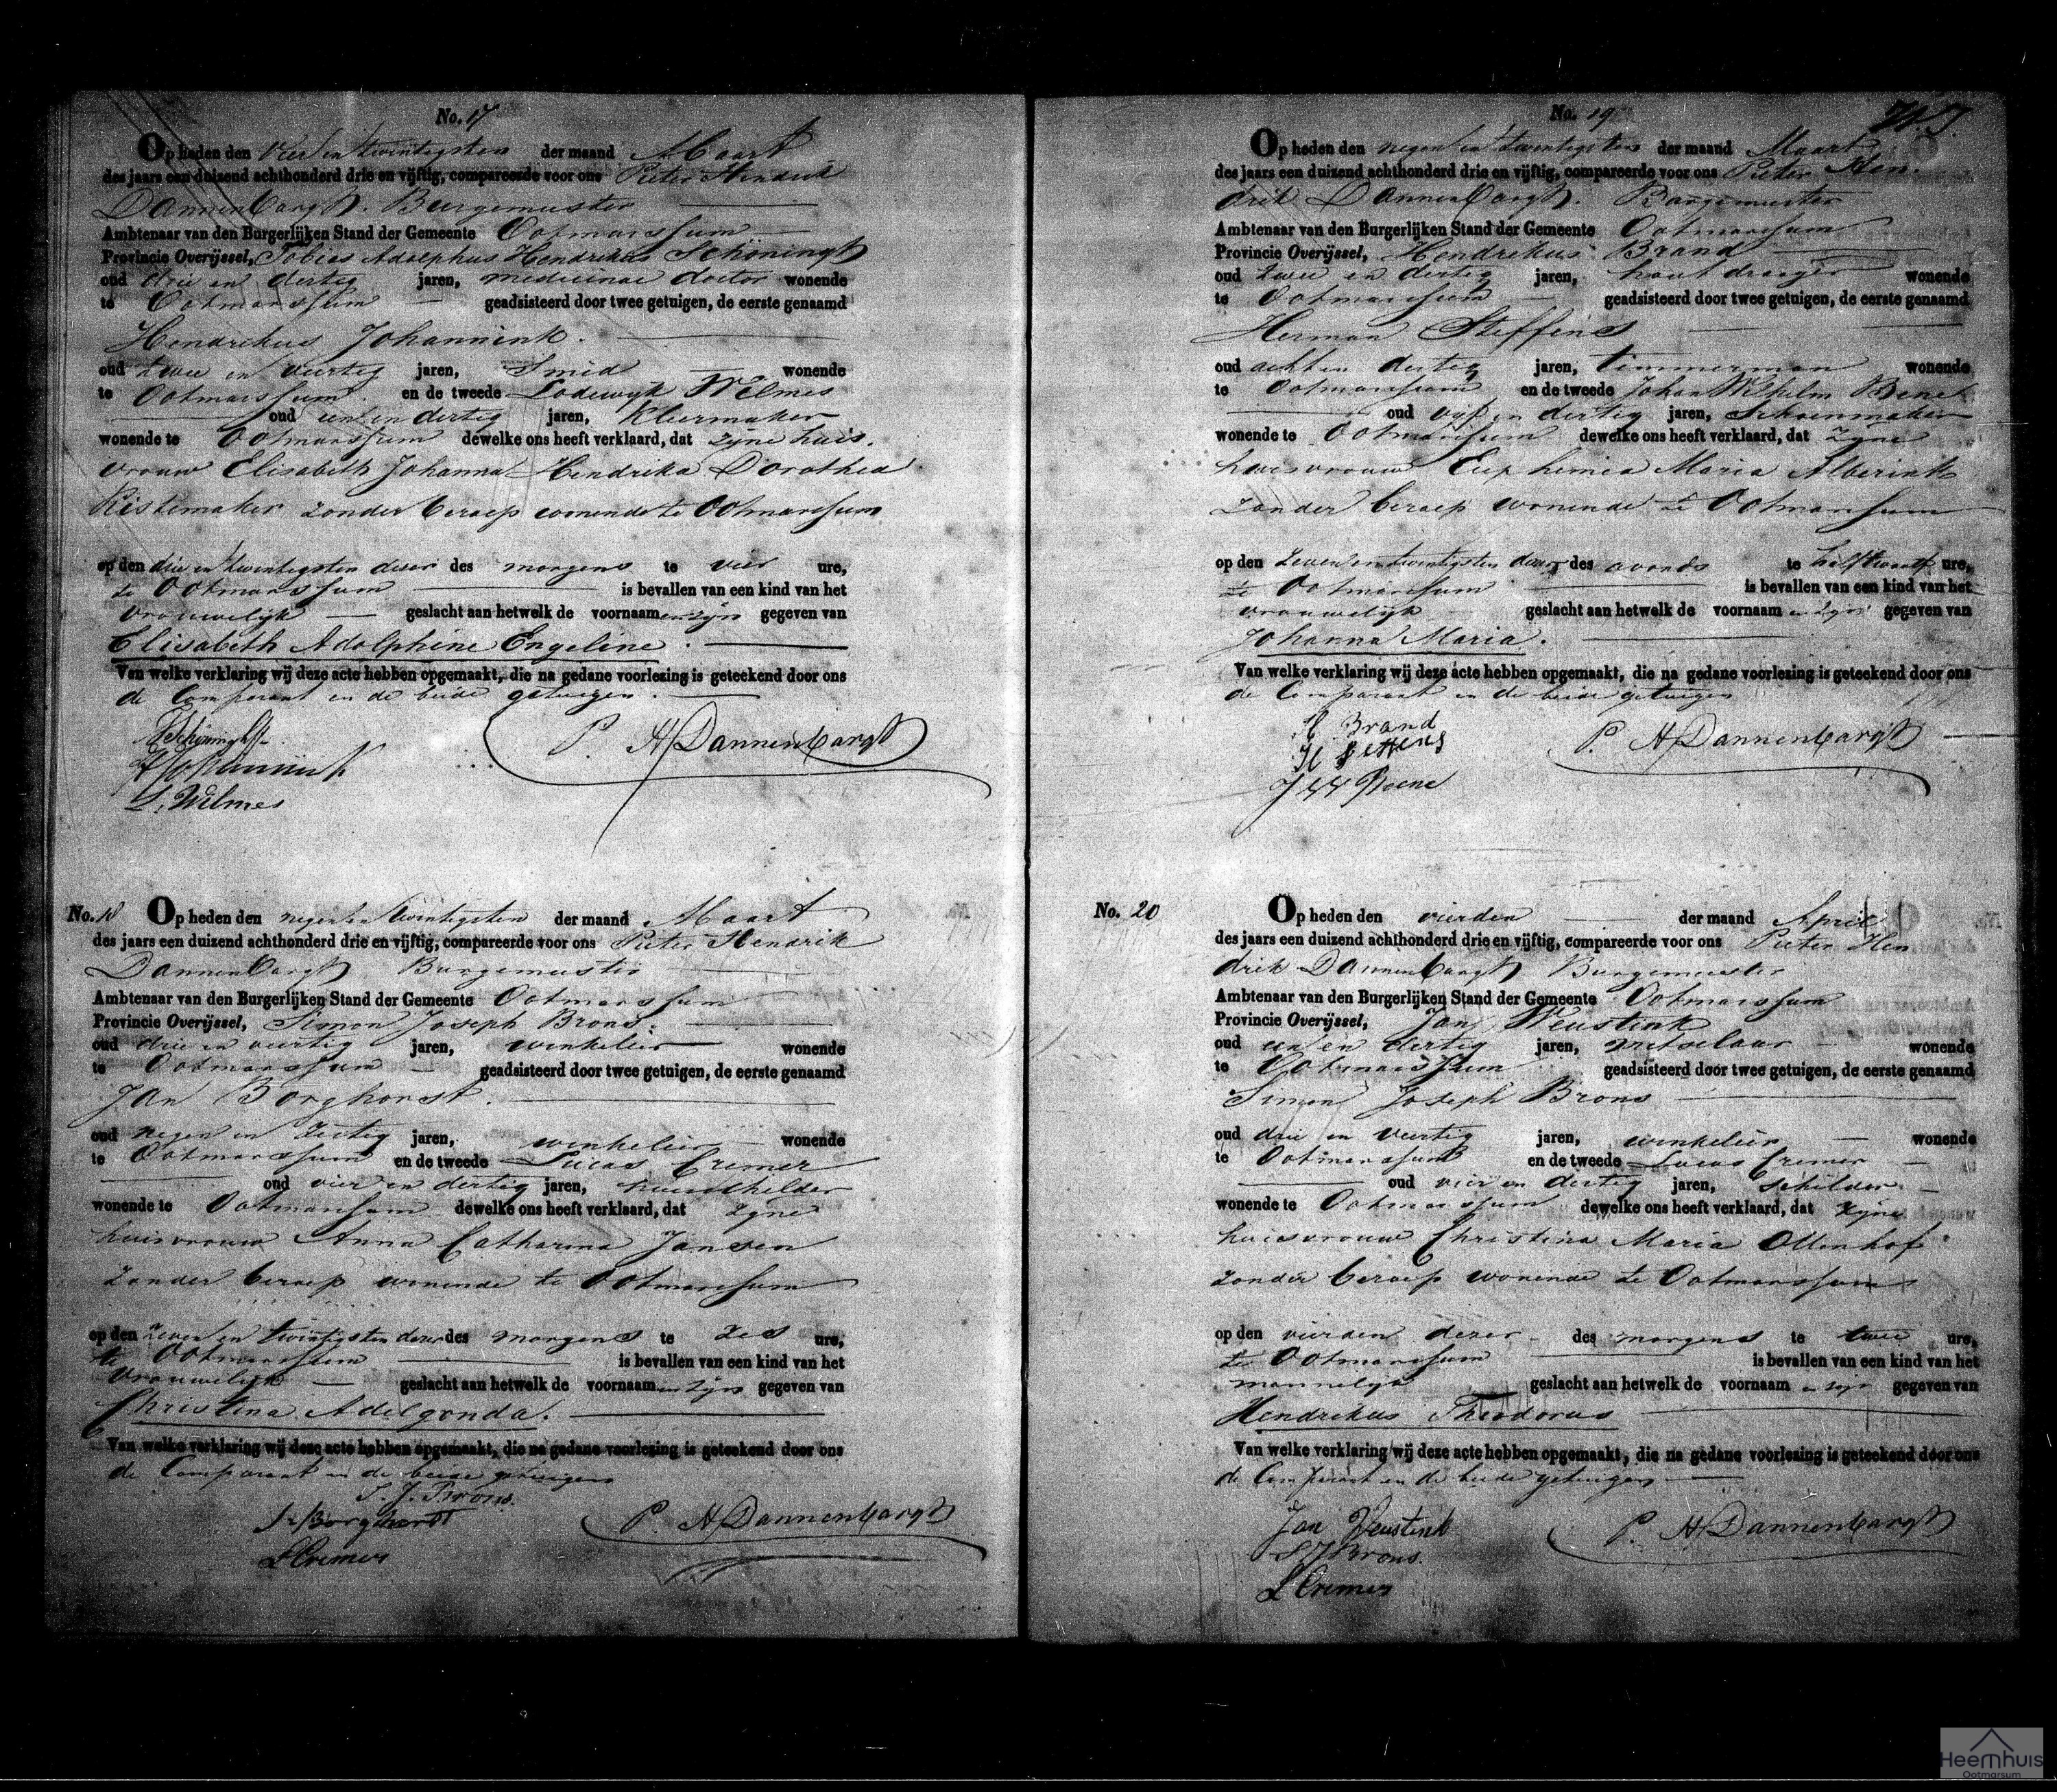 No. 17
Op heden den vier en twintigsten der maand Maart
des jaars een duizend achthonderd drie en vijftig, compareerde voor ons Pieter Hendrik
Dannenbargh. Burgemeester
Ambtenaar van den Burgerlijken Stand der Gemeente Ootmarssum
Provincie Overijssel, Tobias Adolphus Hendrikus Schöningh
oud drie en dertig jaren, medicinae doctor wonende
te Ootmarssum geadsisteerd door twee getuigen, de eerste genaamd
Hendrikus Johannink.
oud twee en veertig jaren, Smid wonende
te Ootmarssum. en de tweede Lodewijk Wilmes
oud een en dertig jaren, Kleermaker
wonende te Ootmarssum dewelke ons heeft verklaard, dat zijne huis.
vrouw Elisabeth Johanna Hendrika Dorothea
Kistemaker zonder beroep wonende te Ootmarssum
op den drie en twintigsten dezer des morgens te vier ure,
te Ootmarssum is bevallen van een kind van het
vrouwelijk geslacht aan hetwelk de voornaam en zijn gegeven van
Elisabeth Adolphine Engeline.
Van welke verklaring wij deze acte hebben opgemaakt, die na gedane voorlezing is geteekend door ons
de Comparant en de beide getuigen.
Schöningh
HJohannink
L. Wilmes
P. H Dannenbargh
No. 18
Op heden den negen en twintigsten der maand Maart
des jaars een duizend achthonderd drie en vijftig, compareerde voor ons Pieter Hendrik
Dannenbargh Burgemeester
Ambtenaar van den Burgerlijken Stand der Gemeente Ootmarssum
Provincie Overijssel, Simon Joseph Brons.
oud drie en veertig jaren, winkelier wonende
te Ootmarssum geadsisteerd door twee getuigen, de eerste genaamd
Jan Borghorst.
oud negen en zestig jaren, winkelier wonende
te Ootmarssum en de tweede Lucas Cremer
oud vier en dertig jaren, huisschilder
wonende te Ootmarssum dewelke ons heeft verklaard, dat zijne
huisvrouw Anna Catharina Jansen
zonder beroep wonende te Ootmarssum
op den zeven en twintigsten dezer des morgens te zes ure,
te Ootmarssum is bevallen van een kind van het
vrouwelijk geslacht aan hetwelk de voornaam en zijn gegeven van
Christina Adelgonda.
Van welke verklaring wij deze acte hebben opgemaakt, die na gedane voorlezing is geteekend door ons
de Comparant en de beide getuigen
S. J. Brons.
J. Borghorst
L Cremer
P. H Dannenbargh
No. 19
Op heden den negen en twintigsten der maand Maart
des jaars een duizend achthonderd drie en vijftig, compareerde voor ons Pieter Hen.
drik Dannenbargh. Burgemeester
Ambtenaar van den Burgerlijken Stand der Gemeente Ootmarssum
Provincie Overijssel, Hendrikus Brand
oud twee en dertig jaren, houtdraaijer wonende
te Ootmarssum geadsisteerd door twee getuigen, de eerste genaamd
Herman Steffens
oud acht en dertig jaren, timmerman wonende
te Ootmarssum en de tweede Johan Wilhelm Bene
oud vijf en dertig jaren, Schoenmaker
wonende te Ootmarssum dewelke ons heeft verklaard, dat zijne
huisvrouw Euphemia Maria Alberink
zonder beroep wonende te Ootmarssum
op den zeven en twintigsten dezer des avonds te half twaalf ure,
te Ootmarssum is bevallen van een kind van het
vrouwelijk geslacht aan hetwelk de voornaam en zijn gegeven van
Johanna Maria.
Van welke verklaring wij deze acte hebben opgemaakt, die na gedane voorlezing is geteekend door ons
de Comparant en de beide getuigen
H. Brand
H Steffens
J W Boene
P. H Dannenbargh
No. 20
Op heden den vierden der maand April
des jaars een duizend achthonderd drie en vijftig, compareerde voor ons Pieter Hen
drik Dannenbargh Burgemeester
Ambtenaar van den Burgerlijken Stand der Gemeente Ootmarssum
Provincie Overijssel, Jan Weustink
oud een en dertig jaren, metselaar wonende
te Ootmarssum geadsisteerd door twee getuigen, de eerste genaamd
Simon Joseph Brons
oud drie en veertig jaren, winkelier wonende
te Ootmarssum en de tweede Lucas Cremer
oud vier en dertig jaren, Schilder
wonende te Ootmarssum dewelke ons heeft verklaard, dat zijne
huisvrouw Christina Maria Ollenhof
zonder beroep wonende te Ootmarssum
op den vierden dezer des morgens te twee ure,
te Ootmarssum is bevallen van een kind van het
mannelijk geslacht aan hetwelk de voornaam en zijn gegeven van
Hendrikus Theodorus
Van welke verklaring wij deze acte hebben opgemaakt, die na gedane voorlezing is geteekend door ons
de Comparant en de beide getuigen
Jan Weustink
S J Brons.
L Cremer
P. H Dannenbargh
Heemhuis
Ootmarsum